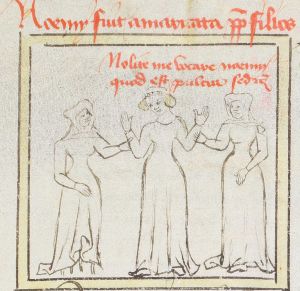 Noemy fuit amaricata pp filios
Nolite me vocare noemy
quod est pulcra sed